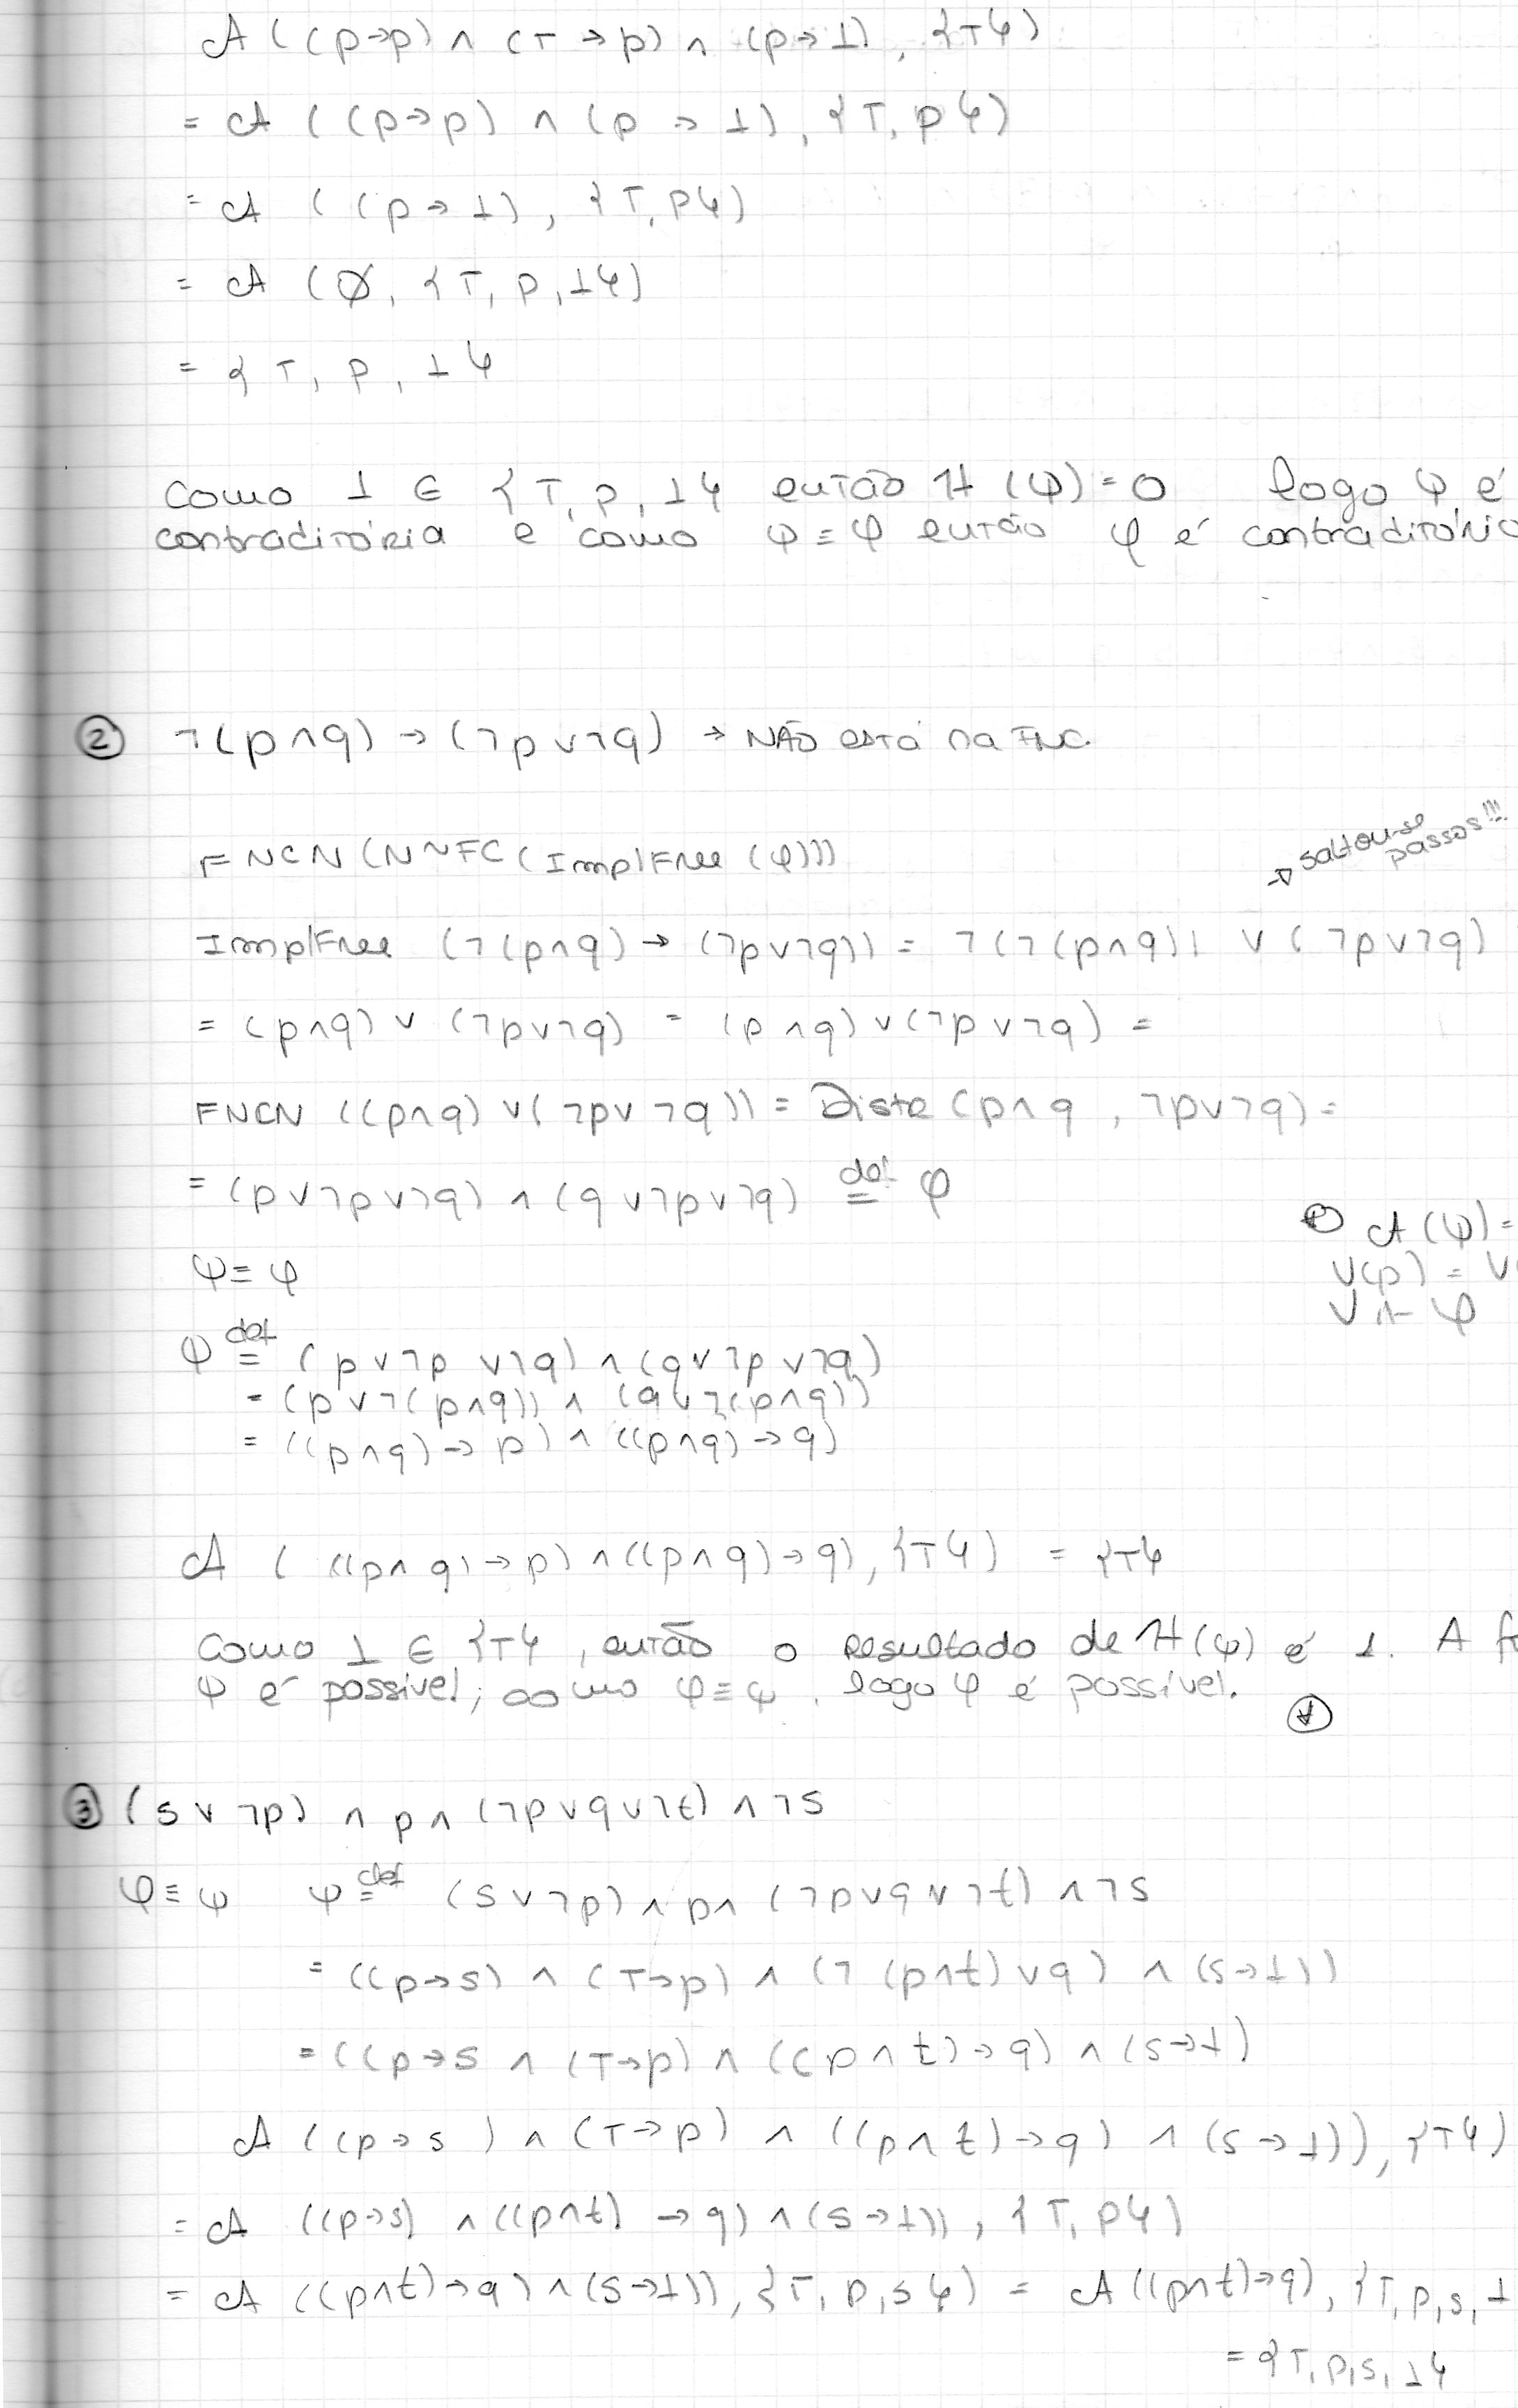 A ((p→p) ∧ (⊤→p) ∧ (p→⊥), {⊤})
= A ((p→p) ∧ (p→⊥), {⊤, p})
= A ((p→⊥), {⊤, p})
= A (∅, {⊤, p, ⊥})
= {⊤, p, ⊥}
Como ⊥ ∈ {⊤, p, ⊥} então H(ψ)=0 logo ψ é
contraditória e como ψ≡φ então φ é contraditório
② ¬(p∧q) → (¬p∨¬q) → NÃO está na FNC.
FNCN (NNFC (ImplFree (φ)))
→ saltou-se
passos!!!
ImplFree (¬(p∧q) → (¬p∨¬q)) = ¬(¬(p∧q)) ∨ (¬p∨¬q)
= (p∧q) ∨ (¬p∨¬q) = (p∧q)∨(¬p∨¬q) =
FNCN ((p∧q) ∨(¬p∨¬q)) = Distr (p∧q, ¬p∨¬q) =
= (p∨¬p∨¬q) ∧ (q∨¬p∨¬q) def= φ
ψ≡φ
A(ψ)=
V(p) = V
V ⊩ φ
ψ def= (p∨¬p∨¬q)∧(q∨¬p∨¬q)
= (p∨¬(p∧q)) ∧ (q∨¬(p∧q))
= ((p∧q)→p) ∧ ((p∧q)→q)
A (((p∧q)→p)∧((p∧q)→q), {⊤}) = {⊤}
Como ⊥ ∈ {⊤}, então o resultado de H(ψ) é 1. A
ψ é possível; como φ≡ψ, logo φ é possível.
③ (s∨¬p) ∧ p∧ (¬p∨q∨¬t) ∧¬s
φ≡ψ ψ def= (s∨¬p)∧p∧(¬p∨q∨¬t) ∧¬s
= ((p→s) ∧ (⊤→p) ∧ (¬(p∧t)∨q) ∧ (s→⊥))
= ((p→s ∧ (⊤→p) ∧ ((p∧t)→q) ∧ (s→⊥)
A ((p→s) ∧ (⊤→p) ∧ ((p∧t)→q) ∧ (s→⊥)), {⊤})
= A ((p→s) ∧ ((p∧t) →q) ∧ (s→⊥)), {⊤, p})
= A ((p∧t)→q) ∧(s→⊥)), {⊤, p, s}) = A ((p∧t)→q), {⊤, p, s, ⊥
= {⊤, p, s, ⊥}